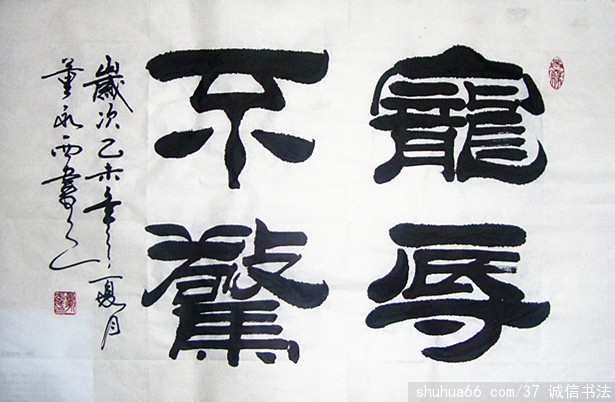 寵辱
不驚
歲次乙未年之夏月
董永西書之
shuhua66.com/37 诚信书法